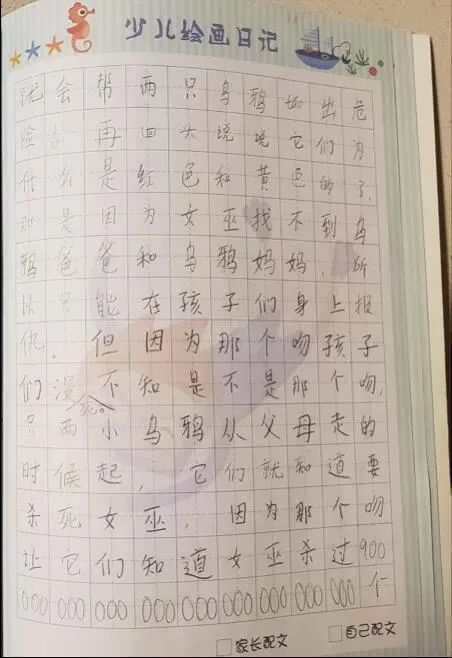 少儿绘画日记
就会帮两只乌鸦加出危
险。再回头说说它们为
什么是红色和黄色的了,
那是因为女巫找不到乌
鸦爸爸和乌鸦妈妈,所
以只能在孩子们身上报
仇。但因为那个吻孩子
们没死。不知是不是那个吻,
只两小乌鸦从父母走的
时候起,它们就知道要
杀死女巫,因为那个吻
让它们知道女巫杀过900
000 000 000 000 000 000 000 000 000 个
家长配文
自己配文